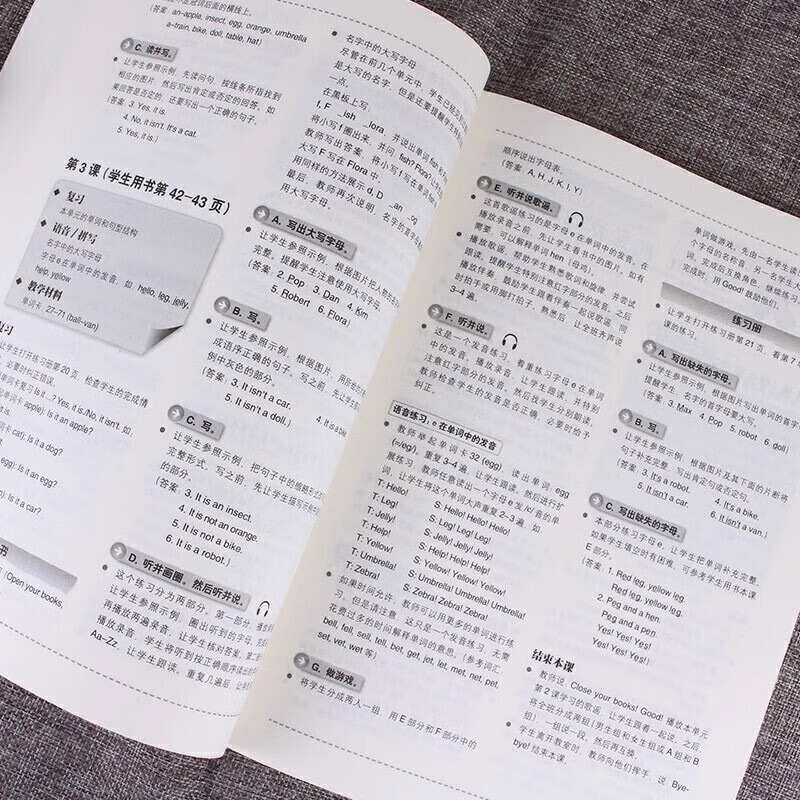 (答案 an-apple, insect, egg, orange, umbrella
a-train, bike, doll, table, hat)
C. 读并写。
让学生参照示例，先读问句，按线条所指找到
相应的图片，然后写出肯定或否定的回答。如
果回答是否定的，还要写出一个正确的句子。
(答案 3. Yes, it is.
4. No, it isn't. It's a cat.
5. Yes, it is.)
第 3 课 (学生用书第 42–43 页)
复习
本单元的单词和句型结构
语音/拼写
名字中的大写字母
字母e在单词中的发音，如 hello, leg, jelly,
help, yellow
教学材料
单词卡 27–71 (ball–van)
让学生打开练习册第 20 页，检查学生的完成情
Is it...? Yes, it is./No, it isn't. 如.
apple): Is it an apple?
cat): Is it a dog?
egg): Is it an egg?
): Is it a car?
(Open your books,
名字中的大写字母
尽管在前几个单元中，学生已经见
是大写的名字，但是还要提醒学生
一点。
在黑板上写
f, F _ish _lora，并说出单词 fish 和
将小写 f 圈出来，并问: fish? Flora?
教师写出答案，将小写 f 写在单词
大写 F 写在 Flora 中。
用同样的方法展示 d, D _an _og
最后，教师再次说明，名字的首字母
用大写字母。
A. 写出大写字母。
让学生参照示例，根据图片把人物的名
完整，提醒学生注意使用大写字母。
(答案 2. Pop 3. Dan 4. Kim
5. Robert 6. Flora)
B. 写。
让学生参照示例，根据图片，用所给的
成语序正确的句子。写之前，先让学生
例中灰色的部分。
(答案 3. It isn't a car. 4. It is a
5. It isn't a doll.)
C. 写。
让学生参照示例，把句子中的缩略形式
完整形式，写之前，先让学生描写示例中
的部分。
(答案 3. It is an insect.
4. It is not an orange.
5. It is not a bike.
6. It is a robot.)
D. 听并画圈，然后听并说。
这个练习分为两部分。第一部分，播放
让学生参照示例，圈出听到的字母，完
再播放两遍录音，让学生核对答案。第二部
播放录音，学生将听到按正确顺序读出的
Aa–Zz，让学生跟读，重复几遍后，让
顺序说出字母表。
(答案 A, H, J, K, I, Y)
E. 听并说歌谣。
这首歌谣练习的是字母 e 在单词中的发音，在
播放录音之前，先让学生看书中的图片，如有
需要，可以解释单词 hen (母鸡)。
播放歌谣，帮助学生熟悉歌词和旋律，并尝试
跟读，提醒学生特别注意红字部分的发音，之后
播放伴奏，鼓励学生跟着伴奏一起说歌谣，同
时拍手或用脚打拍子，熟悉后，让全班齐声说
3–4 遍。
F. 听并说。
这是一个发音练习，着重练习字母 e 在单词
中的发音。播放录音，让学生跟读，并特别
注意红字部分的发音，然后找学生分别朗读，
教师检查学生的发音是否正确，必要时给予
纠正。
语音练习: e 在单词中的发音
教师举起单词卡 32 (egg)，读出单词 egg
(≈/eg/)，重复 3–4 遍，让学生跟读，然后进行扩
展练习，教师任意读出一个字母 e 发 /e/音的单
词，让学生将这个单词大声重复 2–3 遍，如
T: Hello! S: Hello! Hello! Hello!
T: Leg! S: Leg! Leg! Leg!
T: Jelly! S: Jelly! Jelly! Jelly!
T: Help! S: Help! Help! Help!
T: Yellow! S: Yellow! Yellow! Yellow!
T: Umbrella! S: Umbrella! Umbrella! Umbrella!
T: Zebra! S: Zebra! Zebra! Zebra!
如果时间允许，教师可以用更多的单词进行练
习，但是请注意，这只是一个发音练习，无需
花费过多的时间解释单词的意思。(参考词汇，
bell, fell, sell, tell, bet, get, jet, let, met, net, pet,
set, vet, wet 等)
G. 做游戏。
将学生分成两人一组，用 E 部分和 F 部分中的
单词做游戏，先由一名学生读
个字母的名称音，另一名学生大
词。完成后互换角色，继续练习
完成时，用 Good! 鼓励他们。
练习册
让学生打开练习册第 21 页，看第 7
课的练习。
A. 写出缺失的字母。
让学生参照示例，根据图片写出单词的首字
提醒学生，名字的首字母要大写。
(答案 3. Max 4. Pop 5. robot 6. doll)
B. 写。
让学生参照示例，根据图片及其下面的片断将
句子补充完整，写出肯定句或否定句。
(答案 3. It's a robot. 4. It's a bike.
5. It isn't a car. 6. It isn't a van.)
C. 写出缺失的字母。
本部分练习字母 e。让学生把单词补充完整。
如果学生填空时有困难，可参考学生用书本课
E 部分。
(答案 1. Red leg, yellow leg.
Red leg, yellow leg.
2. Peg and a hen.
Peg and a pen.
Yes! Yes! Yes!
Yes! Yes! Yes!)
结束本课
教师说: Close your books! Good! 播放本单元
第 2 课学习的歌谣，让学生跟着一起说，之后，
将全班分成两组 (男生组和女生组或 A 组和 B
组)，一组说一段。然后再互换。
学生离开教室时，教师向他们挥手，说: Bye-
bye! 结束本课。